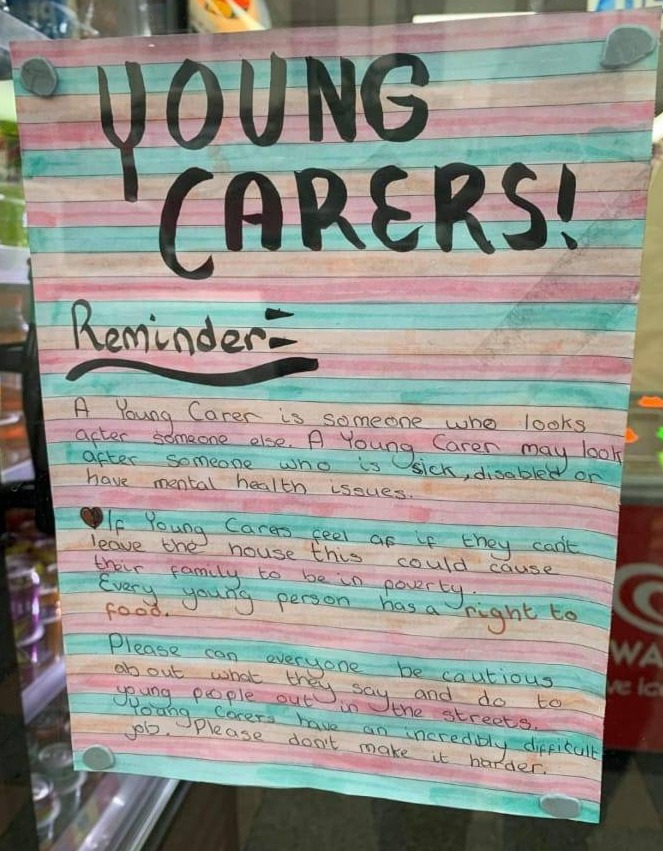 YOUNG
CARERS!
Reminder:
A Young Carer is someone who looks
after someone else. A Young Carer may look
after someone who is sick, disabled or
have mental health issues.
If Young Cares feel af if they can't
leave the house this could cause
their family to be in poverty.
Every young person has a right to
food.
Please can everyone be cautious
about what they say and do to
young people out in the streets.
Young Carers have an incredibly difficult
job. Please don't make it harder.
WA